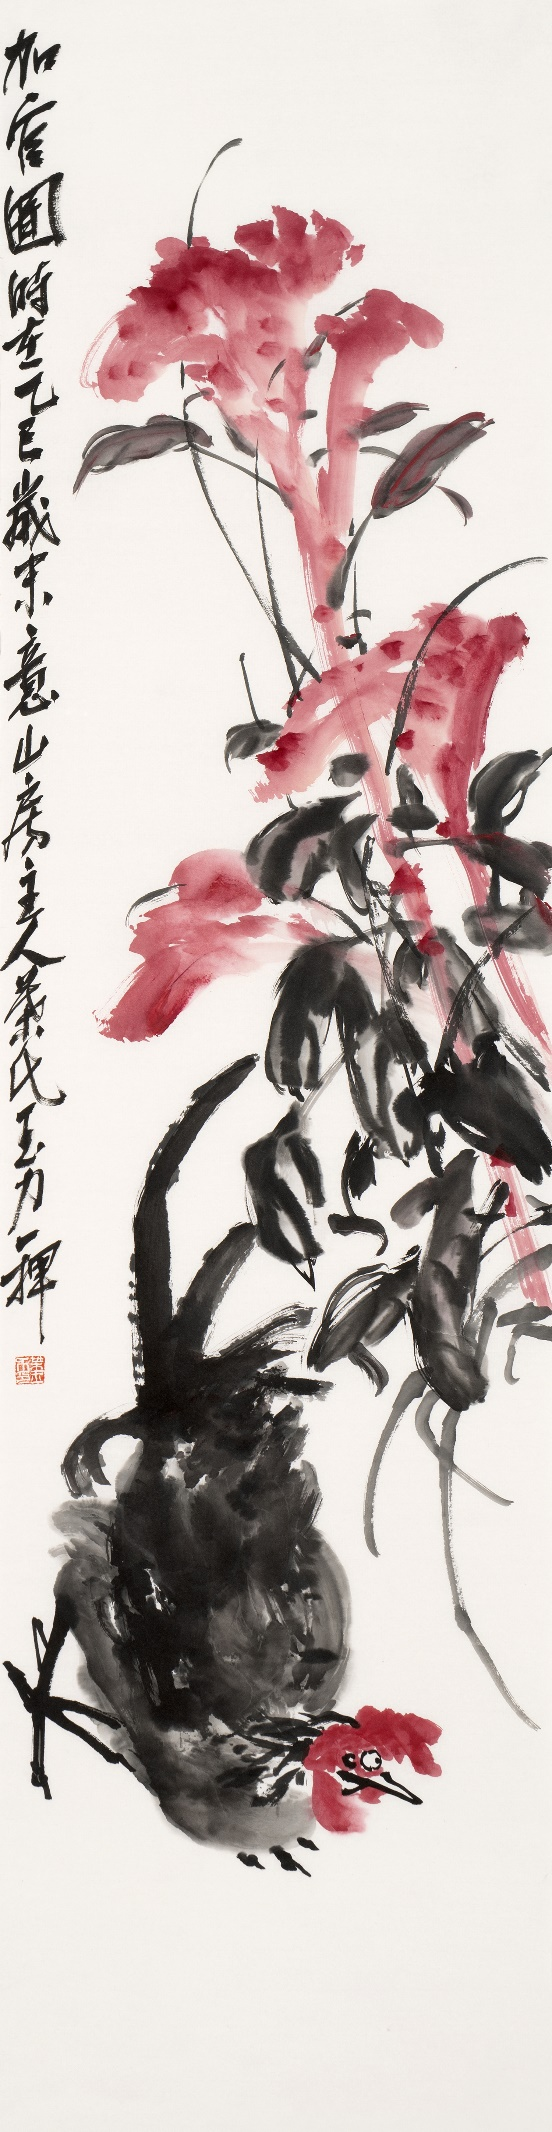 加官圖時在乙巳歲末意山房主人葉氏玉力一揮